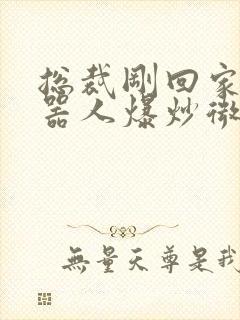 总裁刚回家
器人爆炒微
無量天尊是我